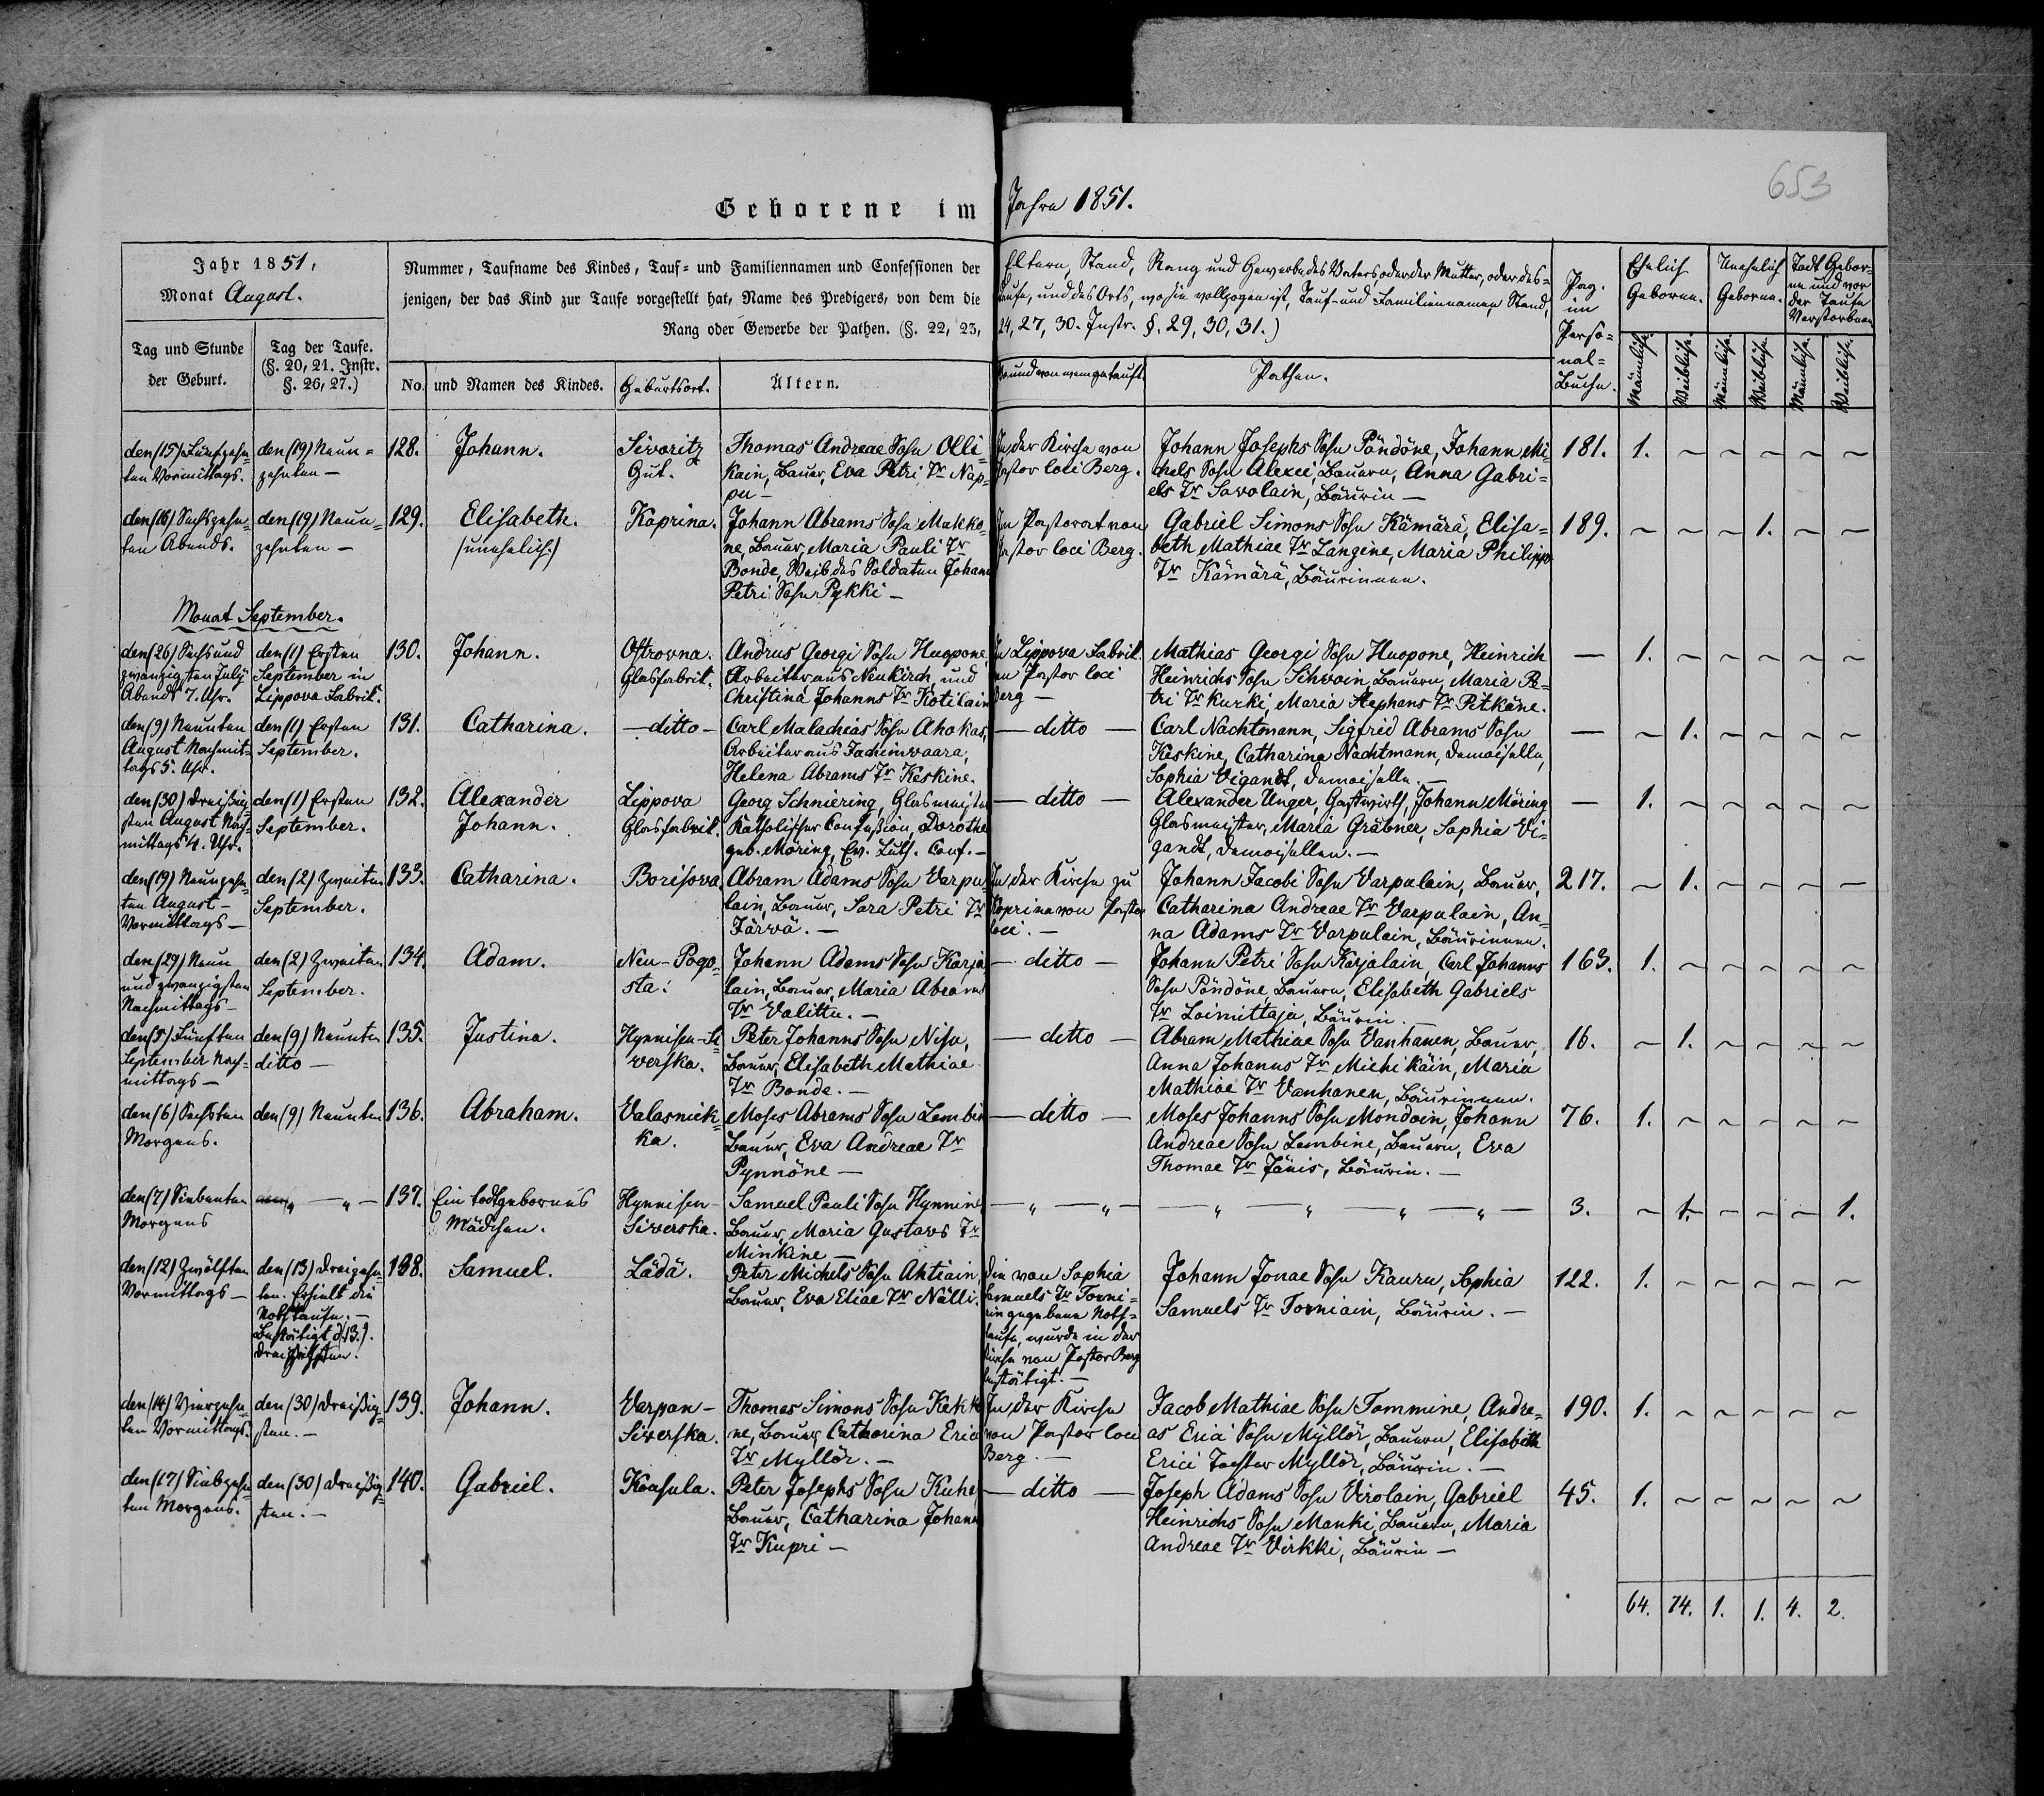 653
Geborene im Jahre 1851.
Jahr 1851,
Monat August.
Nummer, Taufname des Kindes, Tauf- und Familiennamen und Confessionen der Eltern, Stand, Rang und Gewerbe des Vaters, oder der Mutter, oder des-
jenigen, der das Kind zur Taufe vorgestellt hat, Name des Predigers, von dem die Taufe, und des Orts, wo sie vollzogen ist, Tauf- und Familiennamen, Stand,
Rang oder Gewerbe der Pathen. (§. 22, 23, 24, 27, 30. Instr. §. 29, 30, 31.)
Pag. im Perso-nal-Buche.
Ehelich Geborne.
Unehelich Geborne.
Todt Gebor-ne und vor der Taufe Verstorbene
Tag und Stunde der Geburt.
Tag der Taufe. (§. 20, 21. Instr. §. 26, 27.)
No. und Namen des Kindes.
Geburtsort.
Ältern.
Wo und von wem getauft.
Pathen.
Männliche. Weibliche. Männliche. Weibliche. Männliche. Weibliche.
den (15) Fünfzehn-
ten Vormittags.
den (19) Neun-
zehnten —
128.
Johann.
Sivoritz
Gut.
Thomas Andreae Sohn Olli-
kain, Bauer, Eva Petri Tr Nap-
pu —
In der Kirche von
Pastor loci Berg.
Johann Josephs Sohn Pöndöne, Johann Mi-
chels Sohn Alexei, Bauern, Anna Gabri-
els Tr Savolain, Bäurin —
181. 1. ~ ~ ~ ~ ~
den (16) Sechszehn-
ten Abends.
den (19) Neun-
zehnten —
129.
Elisabeth.
(unehelich.)
Kaprina.
Johann Abrams Sohn Makko-
ne, Bauer, Maria Pauli Tr
Bonde, Weib des Soldaten Johann
Petri Sohn Pykki —
Im Pastorat von
Pastor loci Berg.
Gabriel Simons Sohn Kämärä, Elisa-
beth Mathiae Tr Langine, Maria Philipps
Tr Kämärä, Bäurinnen.
189. ~ ~ ~ 1. ~ ~
Monat September.
den (26) Sechs und
zwanzigsten July
Abends 7. Uhr.
den (1) Ersten
September in
Lippova Fabrik.
130.
Johann.
Ostrovna.
Glasfabrik.
Andrus Georgi Sohn Huopone,
Arbeiter aus Neukirch, und
Christina Johanns Tr Kotilain
In Lippova Fabrik.
von Pastor loci
Berg —
Mathias Georgi Sohn Huopone, Heinrich
Heinrichs Sohn Sihvoin, Bauern, Maria Pe-
tri Tr Kurki, Maria Stephans Tr Pitkäne.
— 1. ~ ~ ~ ~ ~
den (9) Neunten
August Nachmit-
tags 5. Uhr.
den (1) Ersten
September.
131.
Catharina.
— ditto —
Carl Malachias Sohn Ahokas,
Arbeiter aus Jachimwaara,
Helena Abrams Tr Keskine.
— ditto —
Carl Nachtmann, Sigfrid Abrams Sohn
Keskine, Catharina Nachtmann, Demoiselle,
Sophia Vigandt, Demoiselle. —
— ~ 1. ~ ~ ~ ~
den (30) Dreißig-
sten August Nach-
mittags 4. Uhr.
den (1) Ersten
September.
132.
Alexander
Johann.
Lippova
Glasfabrik.
Georg Schmiering, Glasmeister
Katholischer Confession, Dorothe
geb. Möring, Ev. Luth. Conf. —
— ditto —
Alexander Unger, Gastwirth, Johann Möring
Glasmeister, Maria Gräbner, Sophia Vi-
gandt, Demoisellen. —
— 1. ~ ~ ~ ~ ~
den (19) Neunzehn-
ten August —
Vormittags —
den (2) Zweiten
September.
133.
Catharina.
Borisova.
Abram Adams Sohn Varpu-
lain, Bauer, Sara Petri Tr
Järvä. —
In der Kirche zu
Koprina von Pastor
loci. —
Johann Jacobi Sohn Varpulain, Bauer,
Catharina Andreae Tr Varpulain, An-
na Adams Tr Varpulain, Bäurinnen.
217. ~ 1. ~ ~ ~ ~
den (29) Neun
und zwanzigsten
Nachmittags —
den (2) Zweiten
September.
134.
Adam.
Neu-Pogo-
sta.
Johann Adams Sohn Karja-
lain, Bauer, Maria Abrams
Tr Valittu. —
— ditto —
Johann Petri Sohn Karjalain, Carl Johanns
Sohn Pöndöne, Bauern, Elisabeth Gabriels
Tr Loimittaja, Bäurin. —
163. 1. ~ ~ ~ ~ ~
den (5) Fünften
September Nach-
mittags —
den (9) Neunten
ditto —
135.
Justina.
Hynnisen-Si-
verska.
Peter Johanns Sohn Nisu,
Bauer, Elisabeth Mathiae
Tr Bonde. —
— ditto —
Abram Mathiae Sohn Vanhanen, Bauer,
Anna Johanns Tr Miehikäin, Maria
Mathiae Tr Vanhanen, Bäurinnen.
16. ~ 1. ~ ~ ~ ~
den (6) Sechsten
Morgens.
den (9) Neunten
136.
Abraham.
Valasnick-
ka.
Moses Abrams Sohn Lembin
Bauer, Eva Andreae Tr
Pynnöne —
— ditto —
Moses Johanns Sohn Mondoin, Johann
Andreae Sohn Lembine, Bauern, Eva
Thomae Tr Jänis, Bäurin. —
76. 1. ~ ~ ~ ~ ~
den (7) Siebenten
Morgens
— „ —
137.
Ein todtgebornes
Mädchen.
Hynnisen-
Siverska.
Samuel Pauli Sohn Hynnine
Bauer, Maria Gustavs Tr
Minkine —
— „ — „ —
— „ — „ — „ — „ —
3. ~ 1. ~ ~ ~ 1.
den (12) Zwölften
Vormittags —
den (13) Dreizehn-
ten. Erhielt die
Nothtaufe. —
Bestätigt d. 13.).
138.
Samuel.
Lädä.
Peter Michels Sohn Aktiain,
Bauer, Eva Eliae Tr Nälli.
Die von Sophia
Samuels Tr Torni-
ain gegebene Noth-
taufe, wurde in der
Kirche von Pastor Berg
bestätigt. —
Johann Jonae Sohn Kauru, Sophia
Samuels Tr Torniain, Bäurin. —
122. 1. ~ ~ ~ ~ ~
den (14) Vierzehn-
ten Vormittags.
den (30) Dreißig-
sten. —
139.
Johann.
Varpan-
Siverska.
Thomas Simons Sohn Kekk
ne, Bauer, Catharina Erici
Tr Myllör. —
In der Kirche
von Pastor loci
Berg. —
Jacob Mathiae Sohn Tommine, Andre-
as Erici Sohn Myllör, Bauern, Elisabeth
Erici Tochter Myllör, Bäurin. —
190. 1. ~ ~ ~ ~ ~
den (17) Siebzehn-
ten Morgens.
den (30) Dreißig-
sten. —
140.
Gabriel.
Koasula.
Peter Josephs Sohn Kuhe
Bauer, Catharina Johann
Tr Kupri —
— ditto —
Joseph Adams Sohn Virolain, Gabriel
Heinrichs Sohn Manki, Bauern, Maria
Andreae Tr Virkki, Bäurin —
45. 1. ~ ~ ~ ~ ~
64. 74. 1. 1. 4. 2.